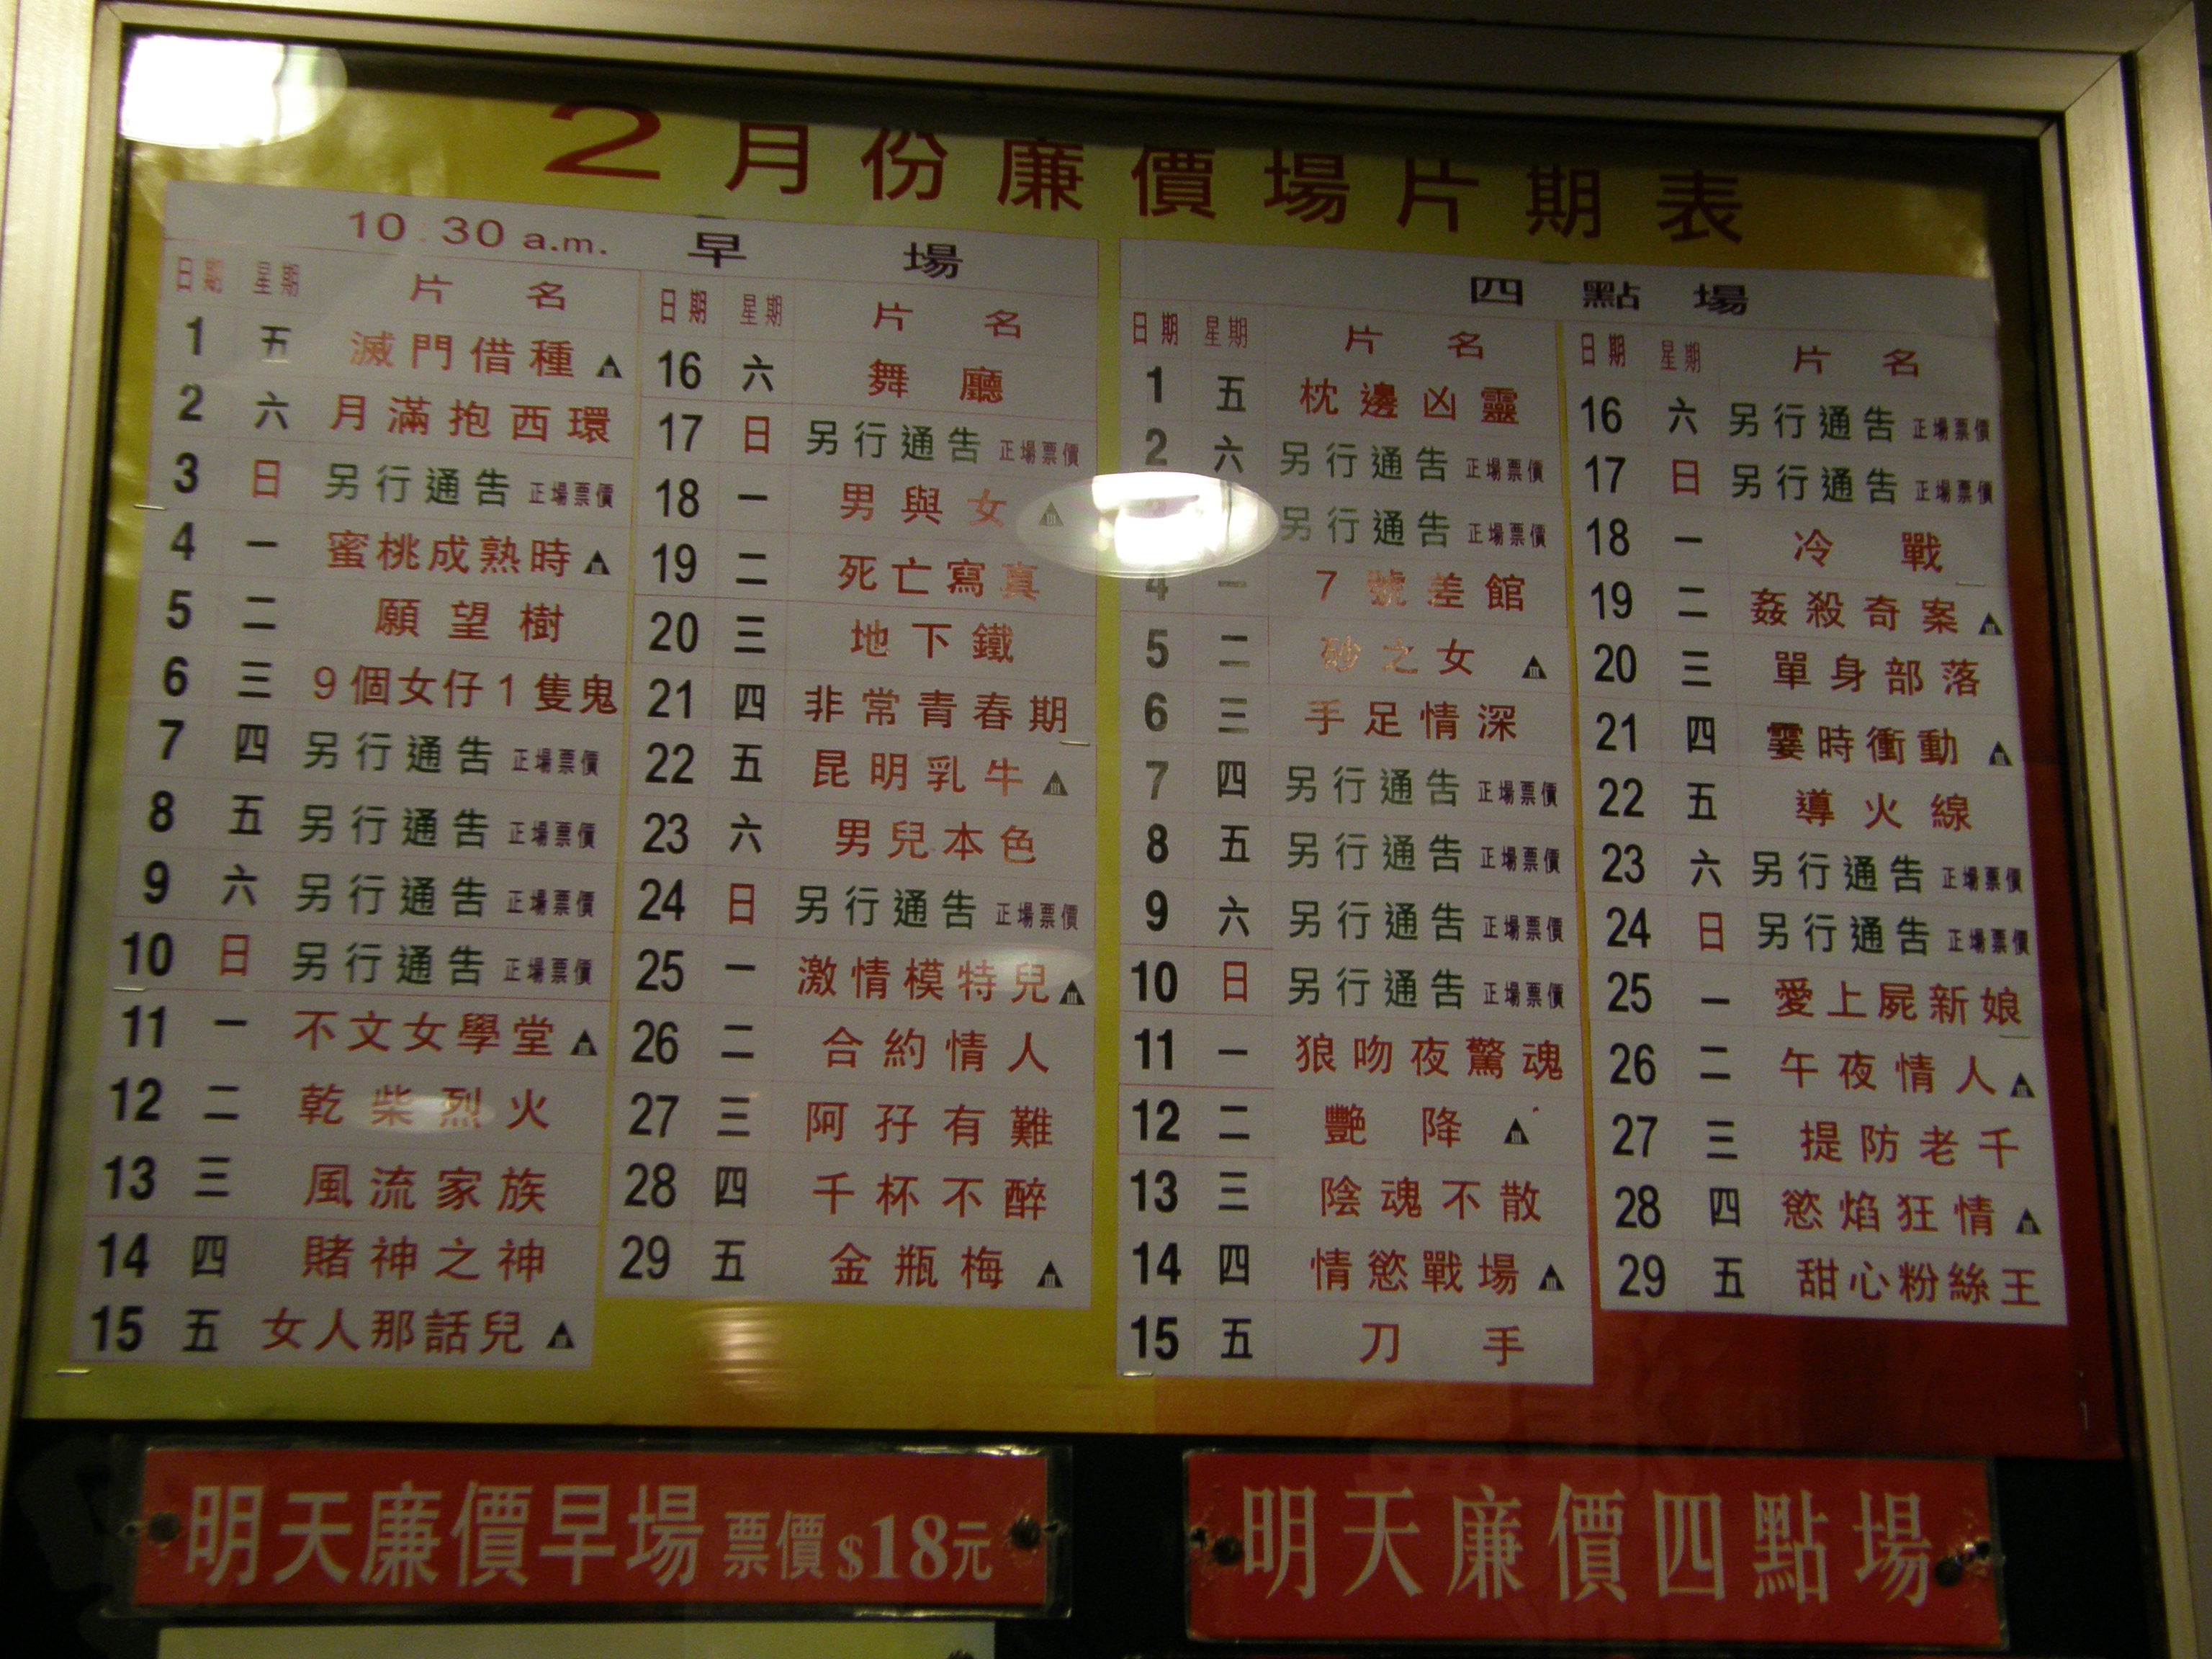 2月份廉價場片期表
10.30 a.m. 早場
日期 星期 片名
1 五 滅門借種 III
2 六 月滿抱西環
3 日 另行通告 正場票價
4 一 蜜桃成熟時 III
5 二 願望樹
6 三 9個女仔1隻鬼
7 四 另行通告 正場票價
8 五 另行通告 正場票價
9 六 另行通告 正場票價
10 日 另行通告 正場票價
11 一 不文女學堂 III
12 二 乾柴烈火
13 三 風流家族
14 四 賭神之神
15 五 女人那話兒 III
日期 星期 片名
16 六 舞廳
17 日 另行通告 正場票價
18 一 男與女 III
19 二 死亡寫真
20 三 地下鐵
21 四 非常青春期
22 五 昆明乳牛 III
23 六 男兒本色
24 日 另行通告 正場票價
25 一 激情模特兒 III
26 二 合約情人
27 三 阿孖有難
28 四 千杯不醉
29 五 金瓶梅 III
四點場
日期 星期 片名
1 五 枕邊凶靈
2 六 另行通告 正場票價
另行通告 正場票價
4 一 7號差館
5 二 砂之女 III
6 三 手足情深
7 四 另行通告 正場票價
8 五 另行通告 正場票價
9 六 另行通告 正場票價
10 日 另行通告 正場票價
11 一 狼吻夜驚魂
12 二 艷降 III
13 三 陰魂不散
14 四 情慾戰場 III
15 五 刀手
日期 星期 片名
16 六 另行通告 正場票價
17 日 另行通告 正場票價
18 一 冷戰
19 二 姦殺奇案 III
20 三 單身部落
21 四 霎時衝動 III
22 五 導火線
23 六 另行通告 正場票價
24 日 另行通告 正場票價
25 一 愛上屍新娘
26 二 午夜情人 III
27 三 提防老千
28 四 慾焰狂情 III
29 五 甜心粉絲王
明天廉價早場 票價$18元
明天廉價四點場